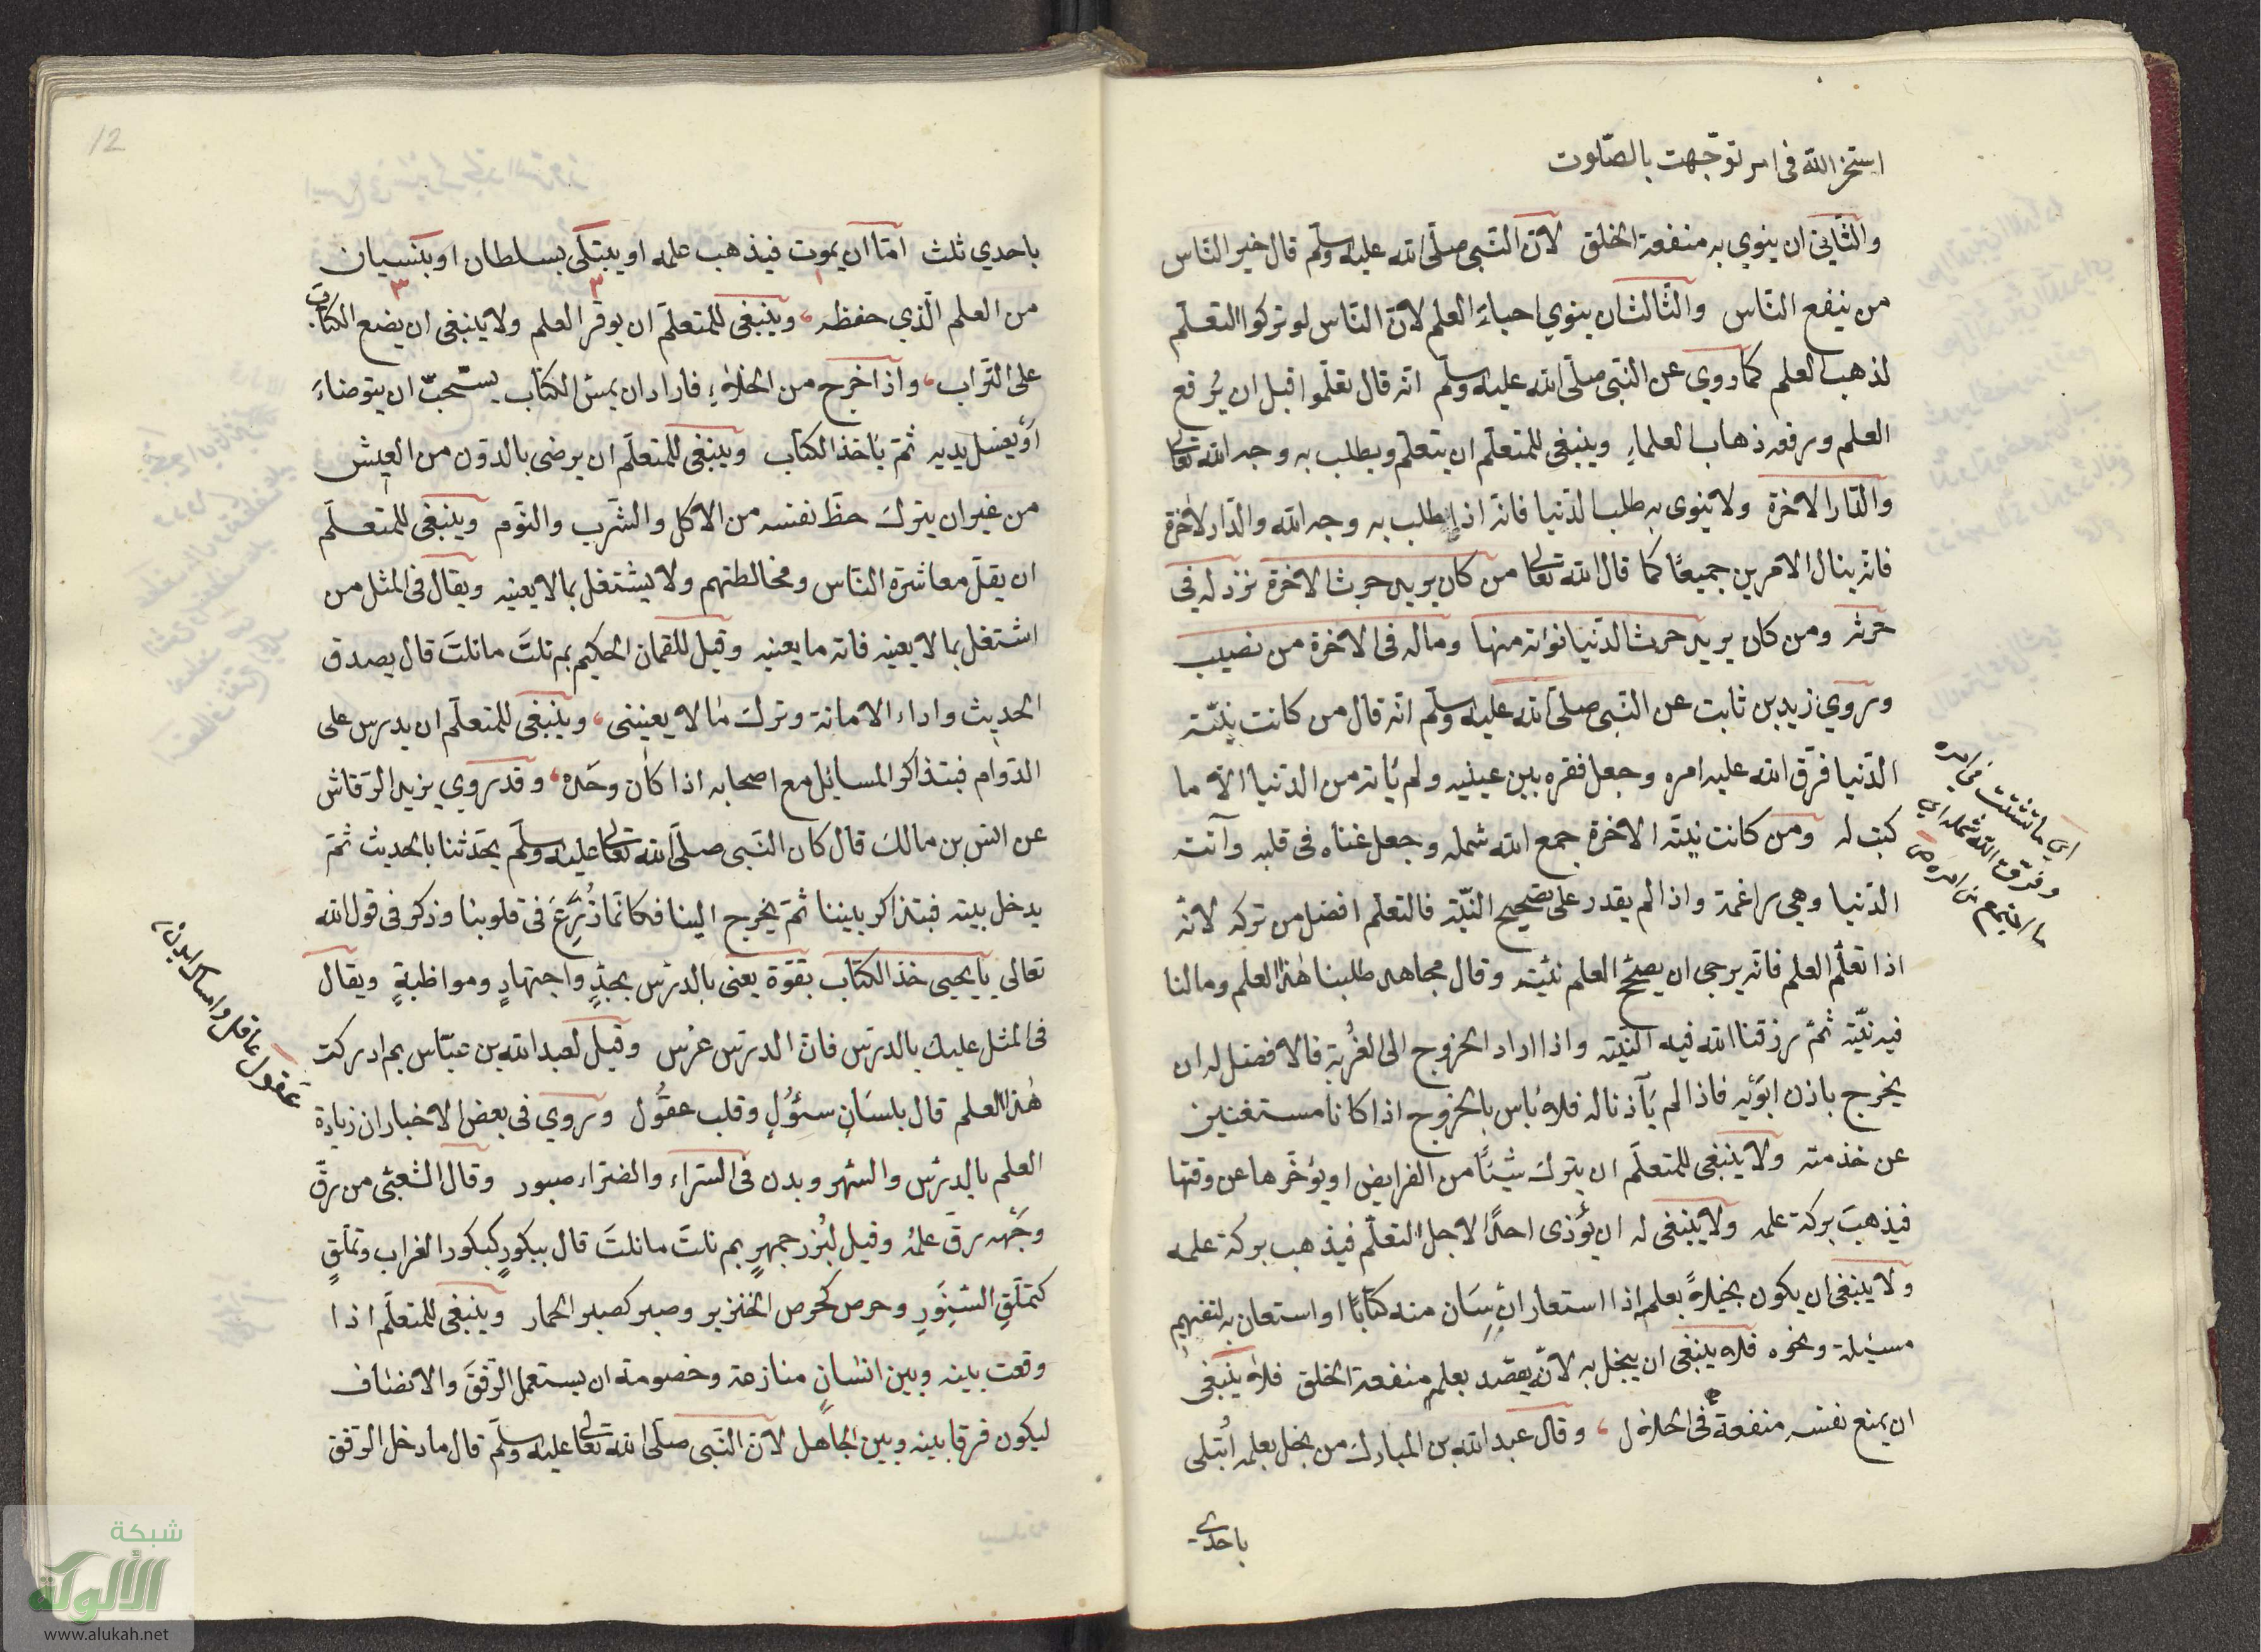 استخر الله فى امر توجهت بالصلوت
والثّاني ان ينوي به منفعة الخلق لانّ النّبى صلّى الله عليه وسلّم قال خير النّاس
من ينفع النّاس والثّالث ان ينوي احياء العلم لانّ النّاس لو تركوا التعلّم
لذهب العلم كما روي عن النّبى صلّى الله عليه وسلّم انّه قال تعلّموا قبل ان يُرفع
العلم ورفعه ذهاب العلماءِ وينبغى للمتعلّم ان يتعلّم ويطلب به وجه الله تعالى
والدّار الاخرة ولا ينوى به طلب الدّنيا فانّه اذا يطلب به وجه الله والدّار الاخرة
فانّه ينال الامرين جميعًا كما قال الله تعالى من كان يريد حرث الاخرة نزد له فى
حرثه ومن كان يريد حرث الدّنيا نؤته منها وماله فى الاخرة من نصيب
وروي زيد بن ثابت عن النّبى صلّى الله عليه وسلّم انّه قال من كانت نيّته
الدّنيا فرّق الله عليه امره وجعل فقره بين عينيه ولم يأته من الدّنيا الاّ ما
كتب له ومن كانت نيّته الاخرة جمع الله شمله وجعل غناه فى قلبه وأتته
الدّنيا وهي راغمة واذا لم يقدر على تصحيح النيّة فالتعلّم افضل من تركه لانّه
اذا تعلّم العلم فانّه يرجى ان يصحّح العلم نيّته وقال مجاهد طلبنا هذا العلم ومالنا
فيه نيّة ثمّ رزقنا الله فيه النيّة واذا اراد الخروج الى الغُربة فالافضل له ان
يخرج باذن ابويه فاذا لم يأذنا له فلا بأس بالخروج اذا كانا مستغنين
عن خدمته ولا ينبغى للمتعلّم ان يترك شيئًا من الفرايض او يؤخّرها عن وقتها
فيذهبَ بركة علمه ولا ينبغى له ان يؤذى احدًا لاجل التعلّم فيذهب بركة علمه
ولا ينبغى ان يكون بخيلاً بعلمه اذا استعار انسان منه كتابًا او استعان به لتفهيم
مسئلة ونحوه فلا ينبغى ان يبخل به لانّه يقصد بعلمه منفعة الخلق فلا ينبغى
ان يمنع نفسه منفعة فى الحلال وقال عبد الله بن المبارك من بخل بعلمه ابُتلى
باحدى
وفرّقت الله شمله اي
باحدي ثلث امّا ان يموت فيذهب علمه او يبتلى بسلطان او بنسيان
١ ٢ ٣
من العلم الّذي حفظه وينبغى للمتعلّم ان يوقّر العلم ولا ينبغى ان يضع الكتاب
على التّراب واذا خرج من الخلاءِ فاراد ان يمسّ الكتاب يستحبّ ان يتوضاءَ
أو يغسل يديه ثمّ يأخذ الكتاب وينبغى للمتعلّم ان يرضى بالدّون من العيش
من غير ان يترك حظّ نفسه من الاكل والشّرب والنّوم وينبغى للمتعلّم
ان يقلّ معاشرة النّاس ومخالطتهم ولا يشتغل بما لا يعنيه ويقال فى المثل من
اشتغل بما لا يعنيه فاته ما يعنيه وقيل للقمان الحكيم بم نلتَ ما نلتَ قال بصدق
الحديث واداء الامانة وترك ما لا يعيننى وينبغى للمتعلّم ان يدرس على
الدّوام فيتذاكر المسائل مع اصحابه اذا كان وحَده وقد روي يزيد الرّقاش
عن انس بن مالك قال كان النّبى صلّى الله تعالى عليه وسلّم يحّدثنا بالحديث ثمّ
يدخل بيته فيتذاكر بيننا ثمّ يخرج الينا فكانّما زُرِّعَ فى قلوبنا وذكر فى قول الله
تعالى يا يحيى خذ الكتاب بقوّة يعنى بالدرس بجدٍّ واجتهادٍ ومواظبةٍ ويقال
فى المثل عليك بالدرس فانّ الدرس غرس وقيل لعبد الله بن عبّاس بم ادركت
هذا العلم قال بلسَانٍ سئوُلٍ وقلب عقوُل وروي فى بعض الاخبار ان زيادة
العلم بالدرس والسّهر وبدن فى السّراء والضرّاء صبور وقال الشعبى من رقّ
وجَهه رقّ علمُه وقيل لبُزر جمهرٍ بم نلتَ ما نلتَ قال ببكورٍ كبكور الغراب وتملّقٍ
كتملّقِ السّنورِ وحرص كحرص الخنزير وصبر كصبر الحمار وينبغى للمتعلّم اذا
وقعت بينه وبين انسانٍ منازعة وخصومة ان يستعمل الرّفقَ والانصاف
ليكون فرقا بينه وبين الجاهل لانّ النّبى صلّى الله تعالى عليه وسلّم قال ما دخل الرّفق
12
شبكة
الألوكة
www.alukah.net